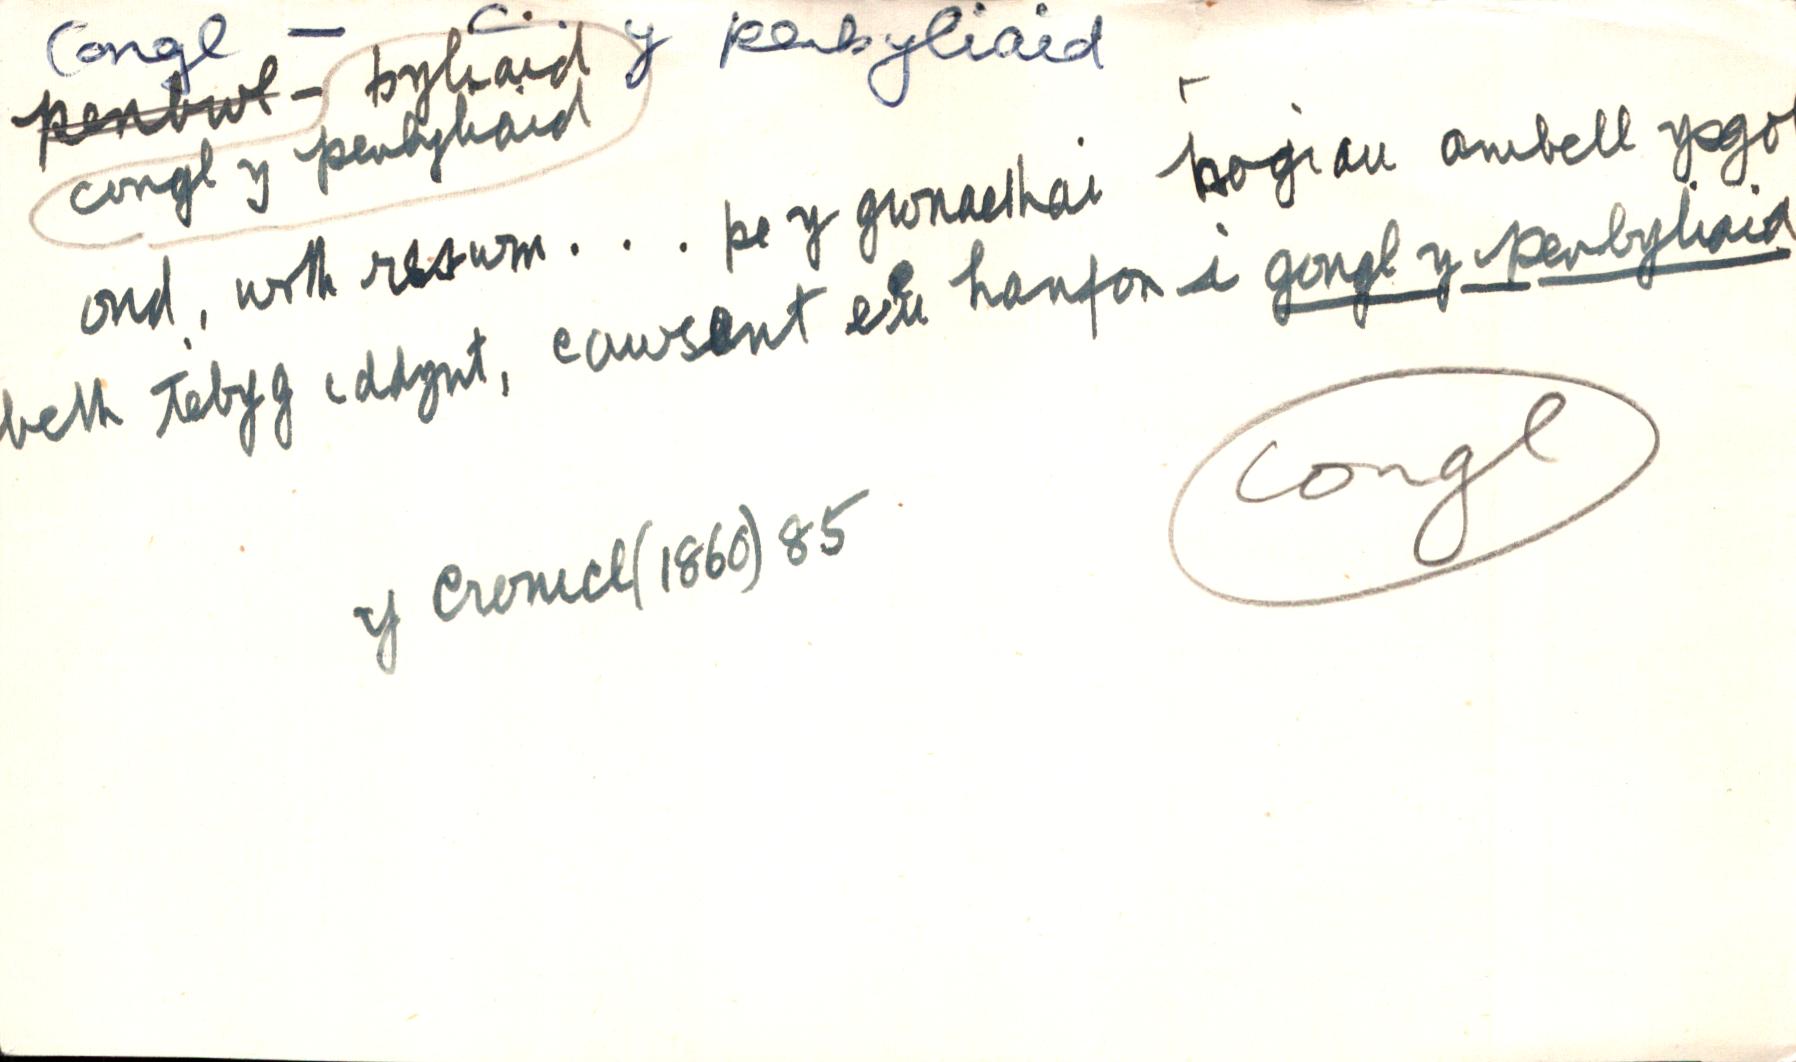 Congl — C. y penbyliaid
penbwl - byliaid
congl y penbyliaid
ond, wrth reswm . . . pe y gwnaethai hogiau ambell ysgol
beth tebyg iddynt, cawsent eu hanfon i gongl y penbyliaid
congl
y Cronicl (1860) 85